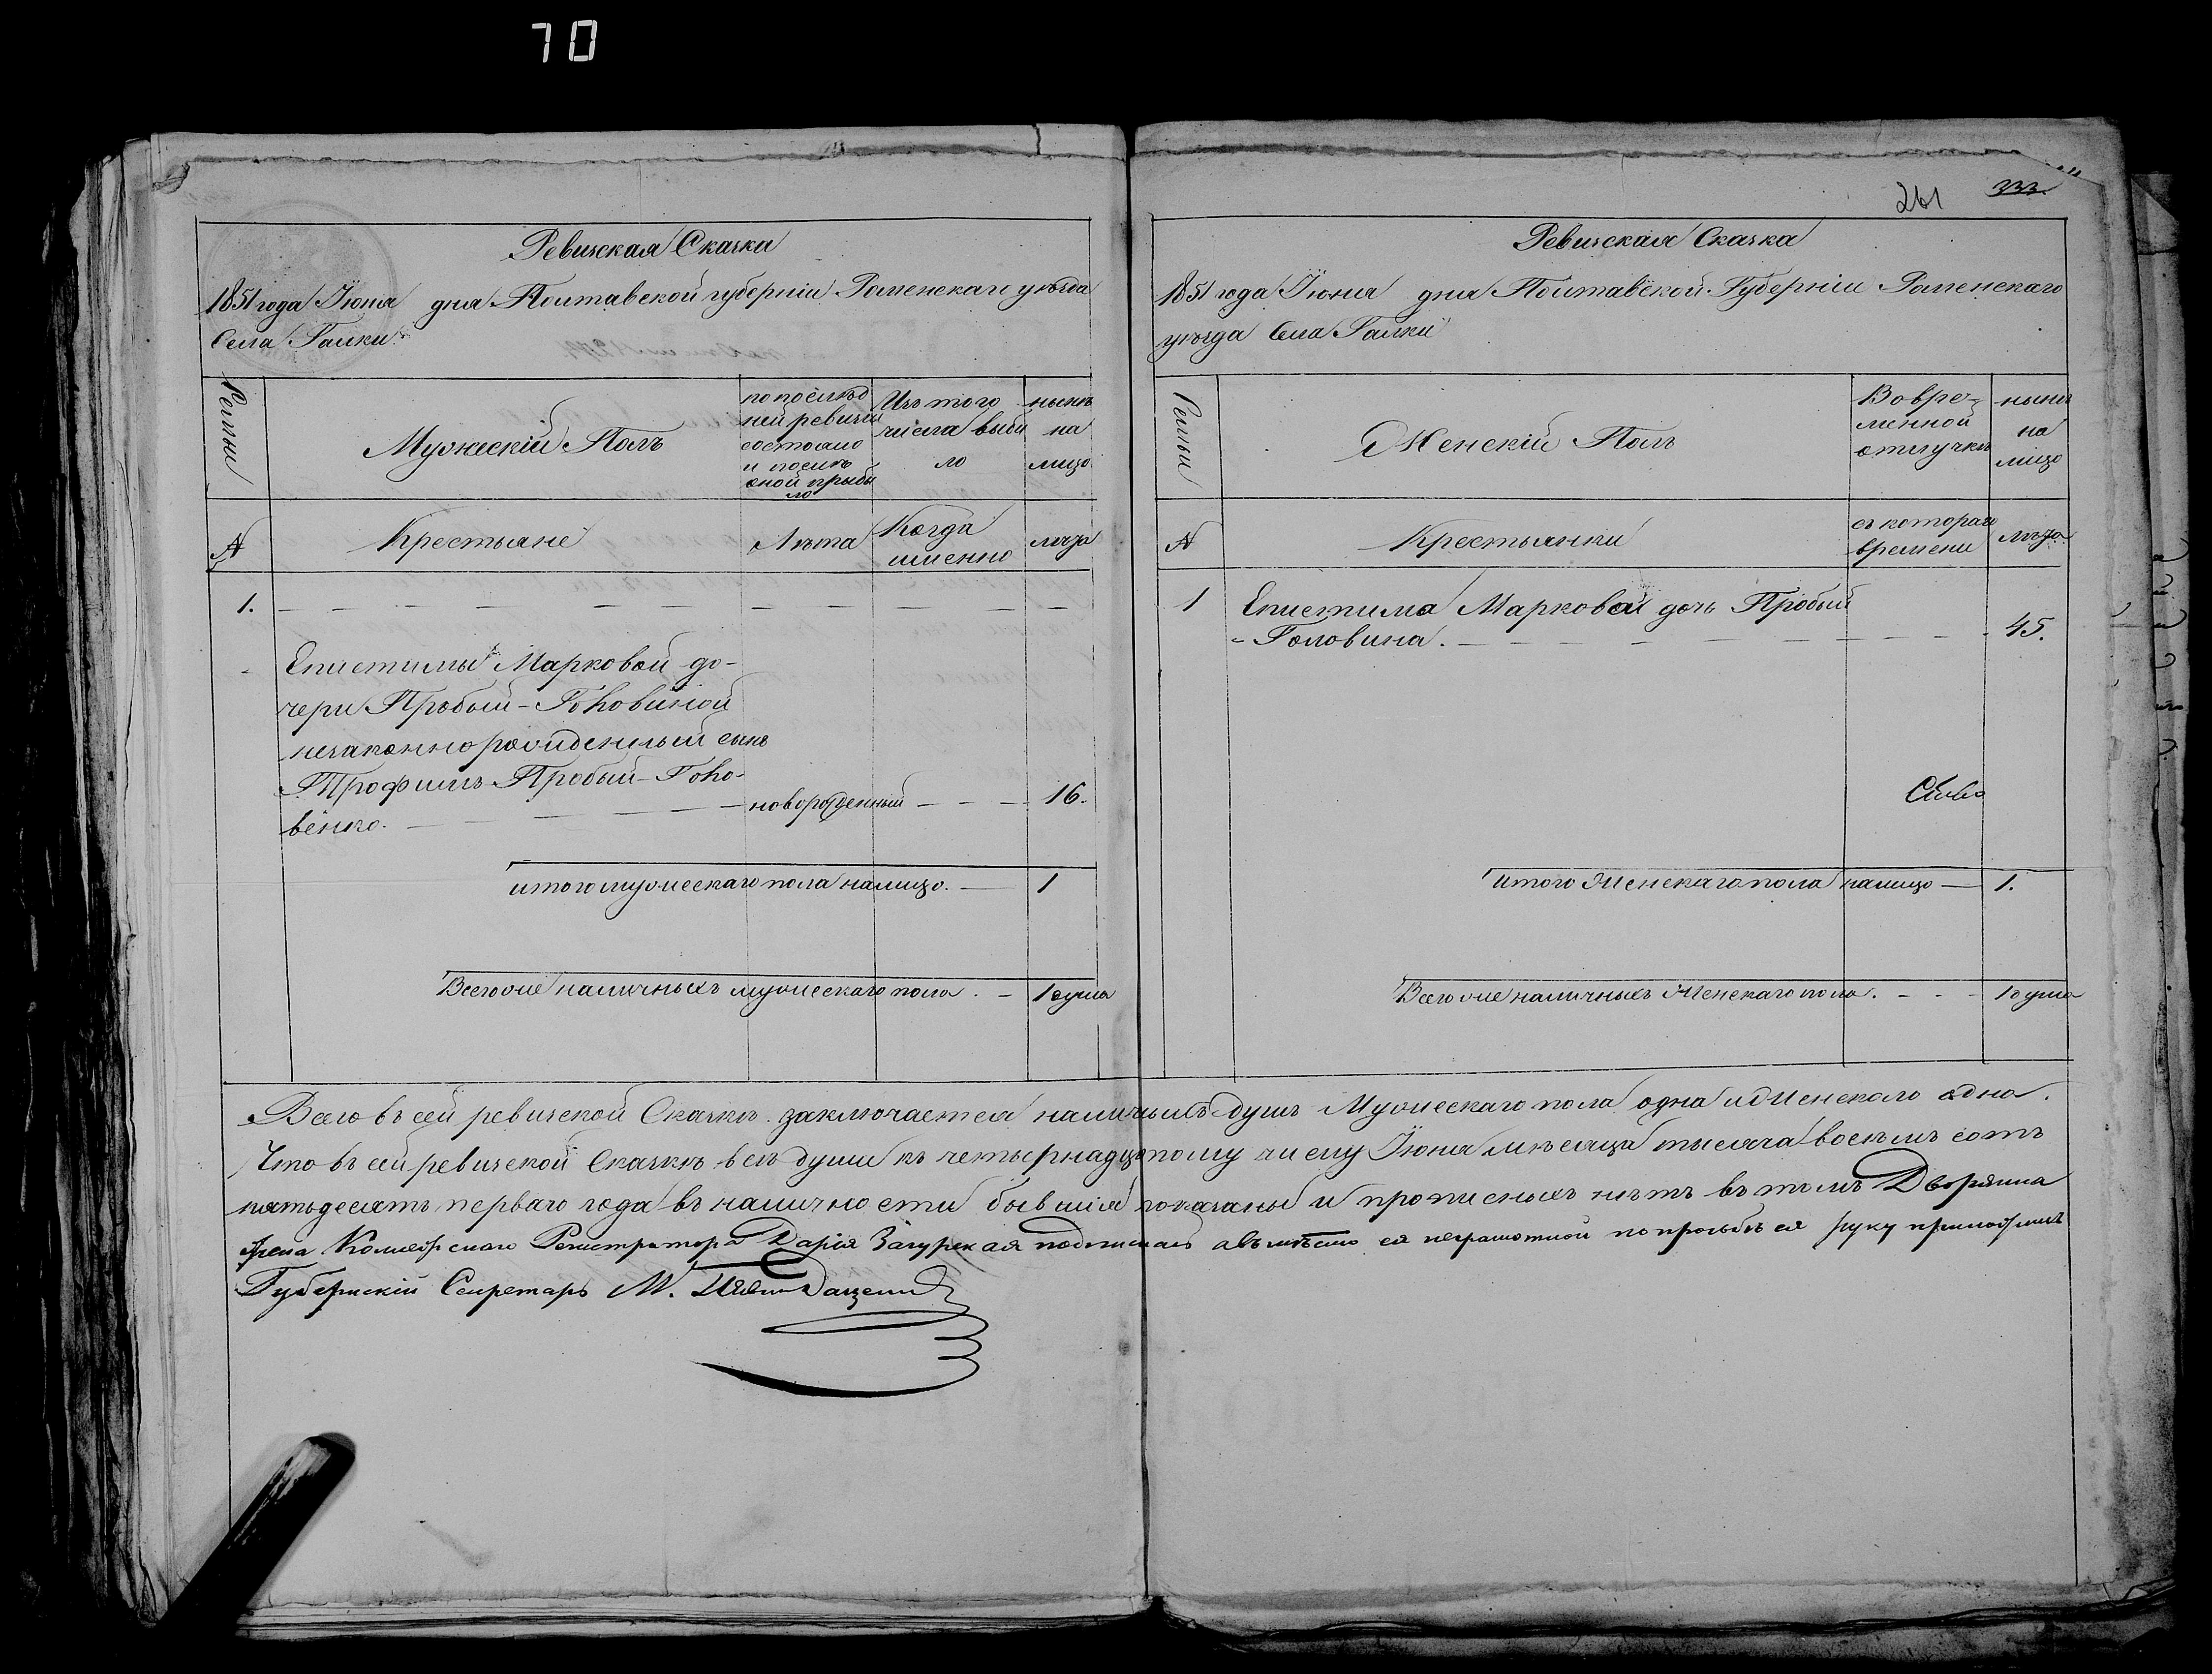 70
Ревизская Сказка
1851 года Іюня дня Полтавской губерніи Роменскаго уѣзда
Села Галки
Мужескій Полъ
по послѣд
ней ревизіи
состояло
и послѣ
оной прибы
ло
Изъ того
числа выбы
ло
нынѣ
на
лицо
№
Крестьяне
Лѣта
Когда
именно
лѣта
1.
Епистимы Марковой до-
чери Пробый-Головиной
незаконнорожденный сынъ
Трофимъ Пробый-Голо-
венко.
новорожденный
16.
итого мужескаго пола налицо.
1
Всего же наличныхъ мужескаго пола.
1 душа
261
333
Ревизская Сказка
1851 года Іюня дня Полтавской Губерніи Роменскаго
уѣзда Села Галки
Женскій Полъ
Во вре-
менной
отлучкѣ
нынѣ
на
лицо
№
Крестьянки
съ котораго
времени
лѣта
1
Епистима Маркова дочь Пробый
-Головина.
45.
итого Женскаго пола налицо
1.
Всего же наличныхъ Женскаго пола.
1 душа
Всего въ сей ревизской Сказкѣ заключается наличныхъ душъ Мужескаго пола одна и Женскаго одна.
Что въ сей ревизской Сказкѣ всѣ души къ четырнадцатому числу Іюня мѣсяца тысяча восемь сотъ
пятьдесятъ перваго года въ наличности бывшія показаны и прописныхъ нѣтъ въ томъ Дворянка
жена Коллежскаго Регистратора Дарія Загурская подписалъ а вмѣсто ея неграмотной по просьбѣ ея руку приложилъ
Губернскій Секретарь М.